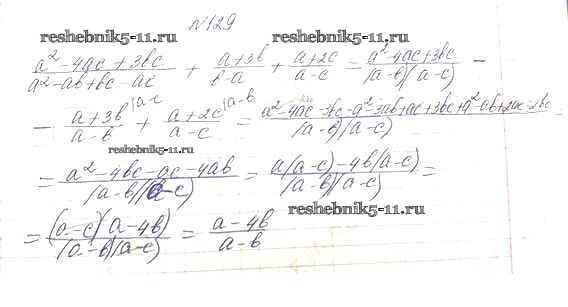 N129
reshebnik5-11.ru reshebnik5-11.ru
(a²-4ac+3bc)/(a²-ab+bc-ac) + (a+3b)/(b-a) + (a+2c)/(a-c) = (a²-4ac+3bc)/((a-b)(a-c)) -
- (a+3b)/(a-b) |a-c + (a+2c)/(a-c) |a-b = (a²-4ac+3bc-a²-3ab+ac+3bc+a²-ab+2ac-2bc)/((a-b)(a-c)) =
= (a²-4bc-ac-4ab)/((a-b)(a-c)) = (a(a-c)-4b(a-c))/((a-b)(a-c)) =
reshebnik5-11.ru
= ((a-c)(a-4b))/((a-b)(a-c)) = (a-4b)/(a-b)
reshebnik5-11.ru